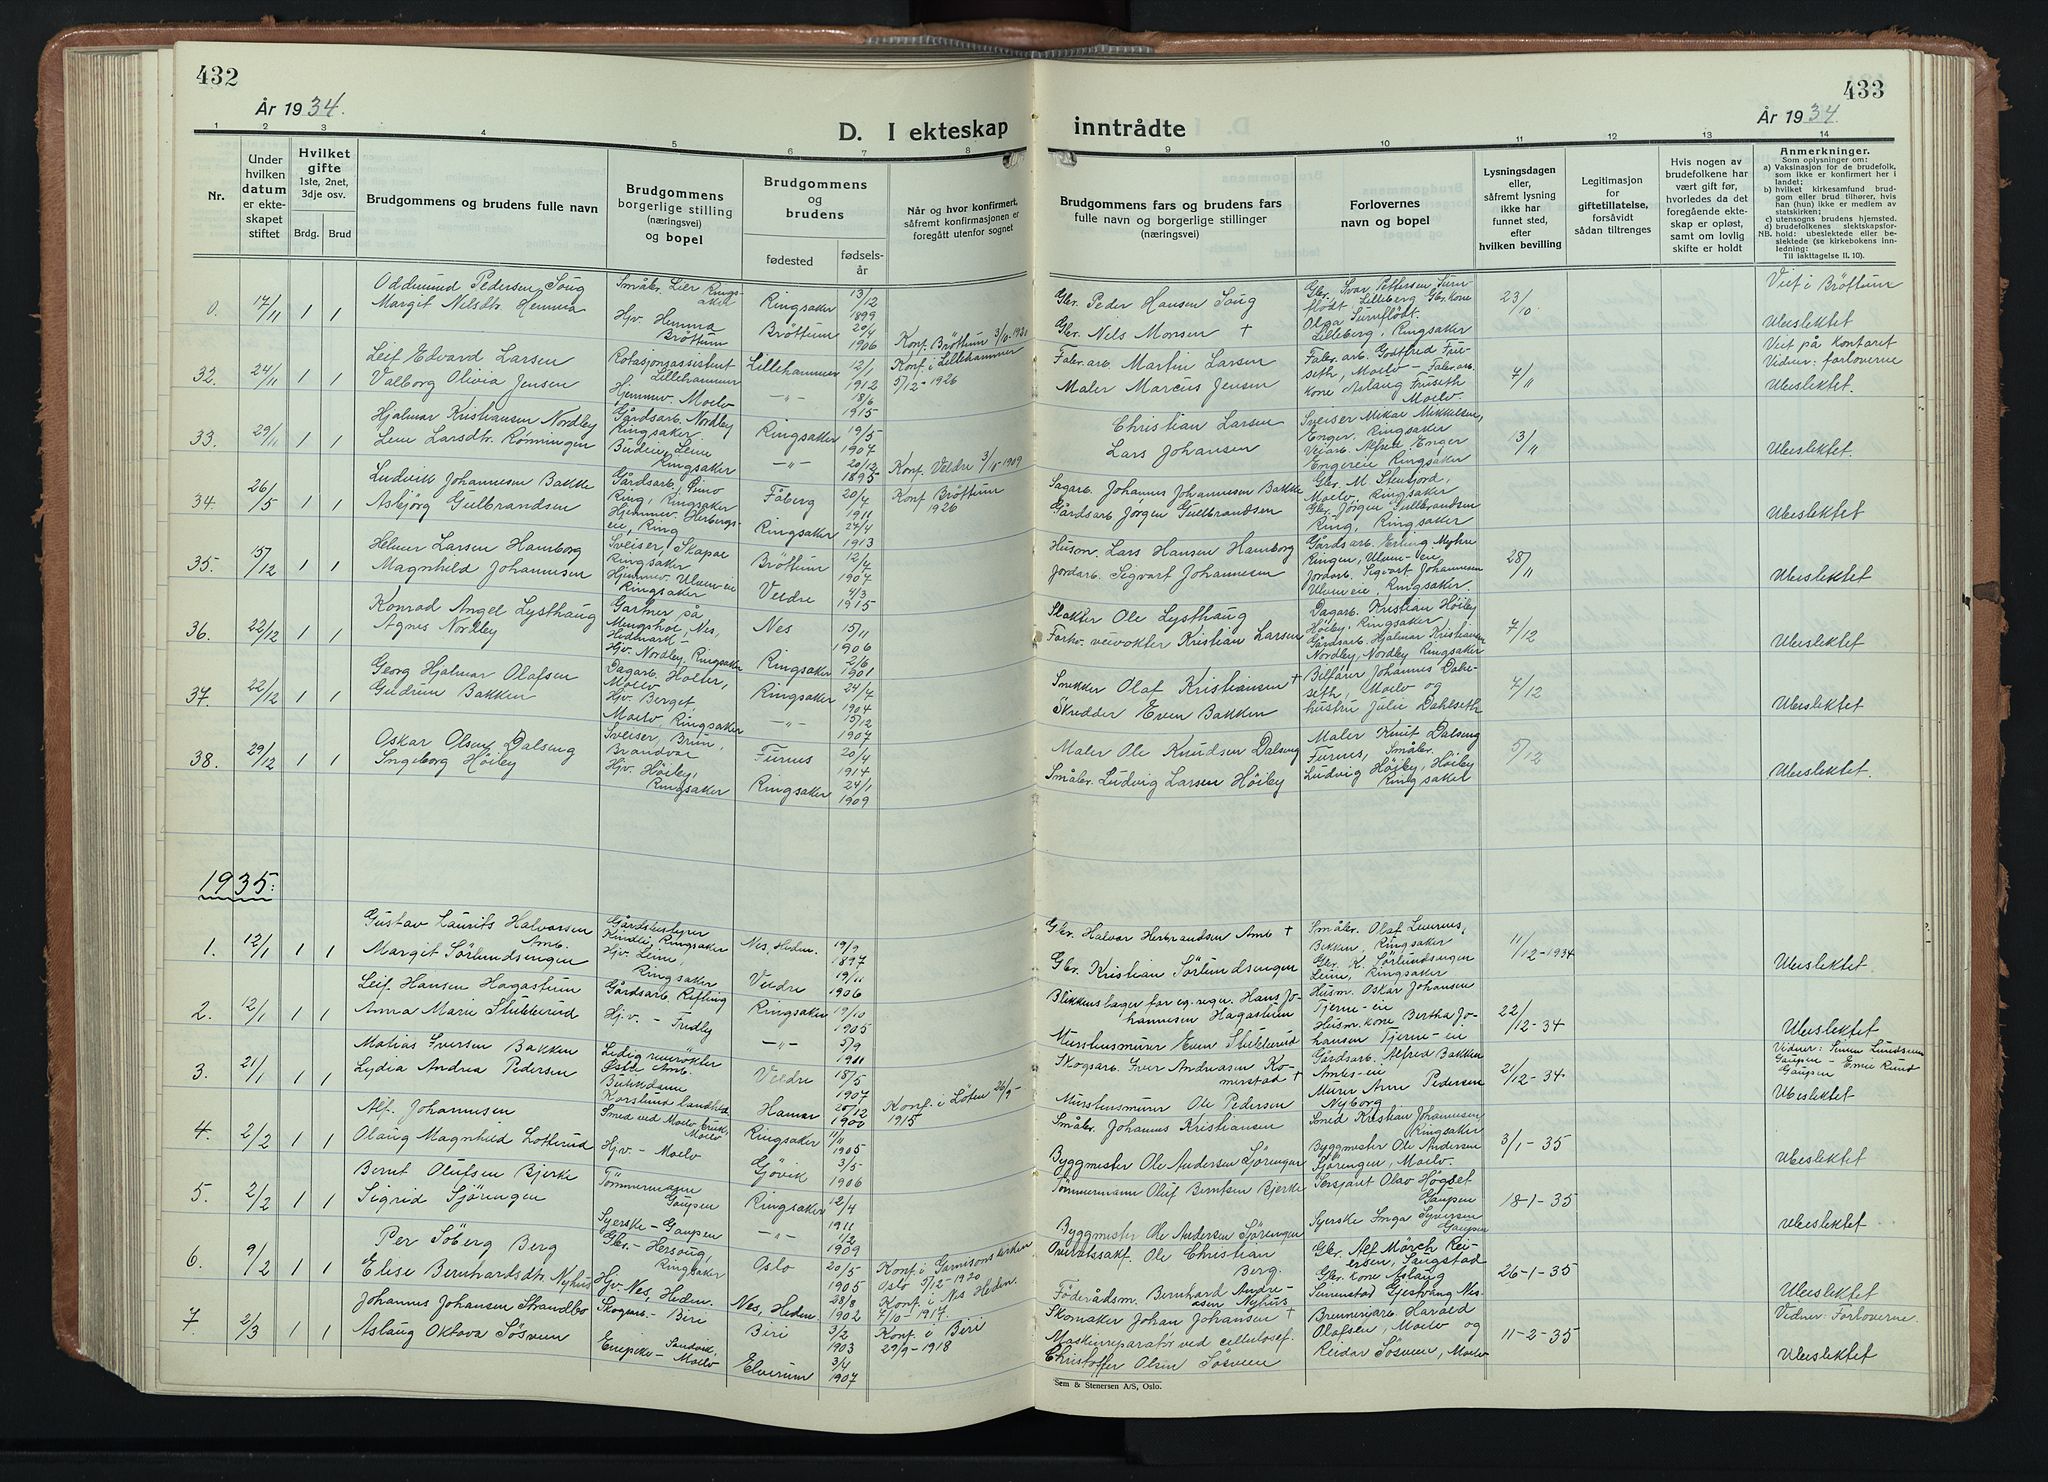 432
År 1934.
D. I ekteskap
1 2 3 4 5 6 7 8
Nr.
Under hvilken datum er ekteskapet stiftet
Hvilket gifte
1ste, 2net, 3dje osv.
Brdg. Brud
Brudgommens og brudens fulle navn
Brudgommens borgerlige stilling (næringsvei) og bopel
Brudgommens og brudens
fødested
fødselsår
Når og hvor konfirmert, såfremt konfirmasjonen er foregått utenfor sognet
0. 17/11 1 1
Oddmund Pedersen Soug
Margit Nilsdtr. Hemma
Småbr. Lier Ringsaker
Hjv. Hemma Brøttum
Ringsaker 13/12 1899
Brøttum 20/4 1906
Konf. Brøttum
32. 24/11 1 1
Leif Edvard Larsen
Valborg Olivia Jensen
Rotasjonsassistent Lillehammer
Hjemmev. Moelv
Lillehammer 12/1 1912
-"- 18/6 1915
Konf. i Lillehammer
5/12-1926
33. 29/11 1 1
Hjalmar Kristiansen Nordby
Lene Larsdtr. Rønningen
Gårdsarb. Nordby
Ringsaker
Budeie, Leine
Ringsaker
Ringsaker 19/5 1907
-"- 20/12 1895
Konf. Veldre 3/10-1909
34. 26/5 1 1
Ludvik Johannesen Bakke
Asbjørg Gulbrandsen
Ring, Ringsaker
Fåberg 20/4 1911
Ringsaker 24/4 1913
Konf. Brøttum
1926
35. 15/12 1 1
Helmer Larsen Hamborg
Magnhild Johannesen
Sveiser, Skapal
Ringsaker
Brøttum 12/4 1907
Veldre 4/3 1915
36. 22/12 1 1
Konrad Angel Lysthaug
Agnes Nordby
Gartner på
Mengshol, Nes,
Hedmark -
Hjv. Nordby, Ringsaker
Nes 15/11 1906
Ringsaker 2/6 1901
37. 22/12 1 1
Georg Hjalmar Olafsen
Gudrun Bakken
Dagarb. Holter,
Moelv
Hjv. Berget,
Moelv, Ringsaker
Ringsaker 24/7 1904
-"- 15/12 1907
38. 29/12 1 1
Oskar Olsen Dalseng
Ingeborg Høiby
Sveiser, Brun,
Brandval
Hjv. Høiby,
Ringsaker
Furnes 20/4 1914
Ringsaker 24/1 1909
1935:
1. 12/1 1 1
Gustav Laurits Halvorsen Amb.
Margit Sørlundsengen
Gårdsbestyrer
Kindli, Ringsaker
Hjv. Leine,
Ringsaker
Nes, Hedm. 19/9 1897
Veldre 19/11 1906
2. 12/1 1 1
Leif Hansen Hagastuen
Anna Marie Stubberud
Gårdsarb. Kifling
Hjv. - Fredly
Ringsaker 19/10 1905
-"- 5/9 1911
3. 21/1 1 1
Matias Iversen Bakken
Lydia Andrea Pedersen
Ledig reverøkter
Butikkdame
Veldre 18/5 1907
Hamar 20/12 1900
Konf. i Løten 26/9-
1915
4. 2/2 1 1
Alf. Johannesen
Olaug Magnhild Lotterud
Hjv. - Moelv
Ringsaker 11/11 1905
Gjøvik 3/5 1906
5. 2/2 1 1
Bernt Olufsen Bjerke
Sigrid Sjørengen
Tømmermann
Gaupen
Syerske - Gaupen
Ringsaker 12/4 1911
-"- 1/2 1909
6. 9/2 1 1
Per Søberg Berg
Elise Bernhardsdtr. Nyhus
Gbr. - Hersoug,
Ringsaker
Hjv. Nes, Hedm.
Oslo 20/5 1905
Nes, Hedm. 28/8 1902
Konf. i Garnisonskirken
Oslo 5/12-1920
Konf. i Nes Hedm.
7/10-1917
7. 2/3 1 1
Johannes Johansen Strandbo
Aslaug Oktava Søsveen
Skogass. - Biri
Enepike - Moelv
Biri 3/2 1903
Elverum 3/4 1907
Konf. i Biri
29/9-1918
433
År 1934.
inntrådte
9 10 11 12 13 14
Brudgommens fars og brudens fars fulle navn og borgerlige stillinger (næringsvei)
Forlovernes navn og bopel
Lysningsdagen eller, såfremt lysning ikke har funnet sted, efter hvilken bevilling
Legitimasjon for giftetillatelse, forsåvidt sådan tiltrenges
Hvis nogen av brudefolkene har vært gift før, hvorledes da det foregående ekteskap er opløst, samt om lovlig skifte er holdt
Anmerkninger.
Som oplysninger om:
a) Vaksinasjon for de brudefolk, som ikke er konfirmert her i landet;
b) hvilket kirkesamfund brudgom eller brud tilhører, hvis han (hun) ikke er medlem av statskirken;
c) utensogns brudens hjemsted.
d) brudefolkenes slektskapsforhold: ubeslektede eller beslektede (se kirkebokens innledning:
NB. Til iakttagelse II. 10).
Gbr. Peder Hansen Soug
Gbr. Nels Monsen +
Gbr. Ivar Pettersen Surnflødt, Lilleberg Gbr. kone
Olga Surnflødt,
Lilleberg, Ringsaker
23/10
Viet i Brøttum
Ubeslektet
Fabr. arb. Martin Larsen
Maler Marcus Jensen
Fabr. arb. Godtfred Fruseth, Moelv - Fabr. arb.
kone Aslaug Fruseth
Moelv.
7/11
Viet på kontoret
Vidner: forloverne
Ubeslektet.
Christian Larsen
Lars Johansen
Sveiser Mikal Mikkelsen,
Enger, Ringsaker
Veiarb. Alfred Enger
Engereie Ringsaker
13/11
Ubeslektet.
Sagarb. Johannes Johannesen Bakke
Gårdsarb. Jørgen Gulbrandsen
Gbr. M. Stenfjord,
Moelv, Ringsaker
Gbr. Jørgen Gullbrandsen
Ring, Ringsaker
Ubeslektet
Husm. Lars Hansen Hamborg
Jordarb. Sigvart Johannesen
Gårdsarb. Erling Myhre
Jordarb. Sigvart Johannesen
28/11
Ubeslektet
Slakter Ole Lysthaug
Forhv. veivokter Kristian Larsen
Dagarb. Kristian Høiby
Høiby, Ringsaker
Gårdsarb. Hjalmar Kristiansen
Nordby, Nordby Ringsaker
7/12
Ubeslektet
Snekker Olaf Kristiansen +
Skredder Even Bakken
Bilfører Johannes Dahlseth, Moelv og
hustru Julie Dahlseth
7/12
Ubeslektet
Maler Ole Knudsen Dalseng
Småbr. Ludvig Larsen Høiby
Maler Knut Dalseng
Furnes, Småbr.
Ludvig Høiby, Høiby
Ringsaker
5/12
Ubeslektet.
Gbr. Halvor Herbrandsen Amb +
Gbr. Kristian Sørlundsengen
Småbr. Olaf Leurnes,
Bekken, Ringsaker
Gbr. K. Sørlundsengen
Leine, Ringsaker
11/12-1934
Ubeslektet
Blikkenslager for eg. regn. Hans Johannesen Hagastuen
Murstensmurer Even Stubberud
Husm. Oskar Johansen
Tjerne-eie
Husm. kone Bertha Johansen Tjerne-eie
22/12-34
Ubeslektet
Skogsarb. Iver Andreasen Komerstad +
Murstensmurer Ole Pedersen
Gårdsarb. Alfred Bakken
Murer Arne Pedersen
Nyborg
21/12-34
Vidner: Simen Lundsveen
Gaupen - Emil Rund
Gaupen
Ubeslektet
Småbr. Johannes Kristiansen
Byggmester Ole Andersen Sjørengen
Smed Kristian Johannesen
Ringsaker
Byggmester Ole Andersen
Sjørengen, Moelv.
3/1-35
Ubeslektet
Tømmermann Oluf Berntsen Bjerke
Byggmester Ole Andersen Sjørengen
Sersjant Olav Høgset
Gaupen
Syerske Inga Syversen
Gaupen
18-1-35
Ubeslektet
Overrettssakf. Ole Christian
Berg.
Føderådsm. Bernhard Andreassen Nyhus
Gbr. Alf Mørch Reiersen, Saugstad
Gbr. kone Aslaug
Simenstad Gjestvang Nes
26-1-35
Ubeslektet
Skomaker Johan Johansen +
Maskinreparatør ved cellulosef.
Christoffer Olsen Søsveen
Brenneriarb. Harald
Olafsen, Moelv og
Reidar Søsveen, Moelv
11-2-35
Vidner: Forloverne.
Ubeslektet
Sem & Stenersen A/S, Oslo.